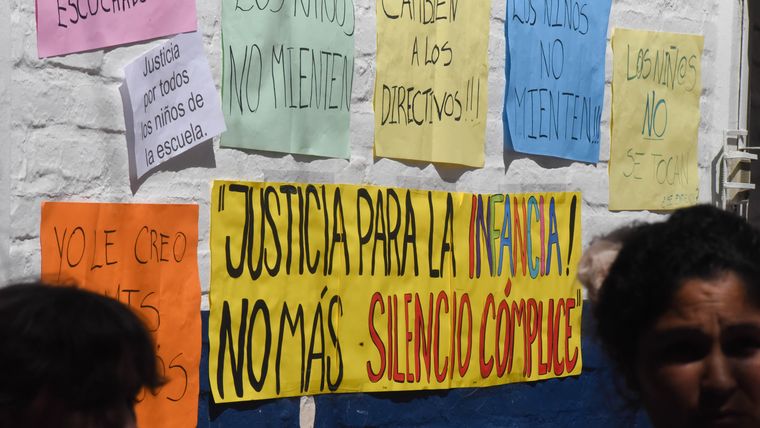 ESCUCHARLOS
Justicia
por todos
los niños de
la escuela.
LOS NIÑOS
NO MIENTEN
TAMBIÉN
A LOS
DIRECTIVOS!!!
LOS NIÑOS
NO
MIENTEN!!!
LOS NIÑ@S
NO
SE TOCAN
YO LE CREO
A MIS
"JUSTICIA PARA LA INFANCIA!
NO MÁS SILENCIO CÓMPLICE"